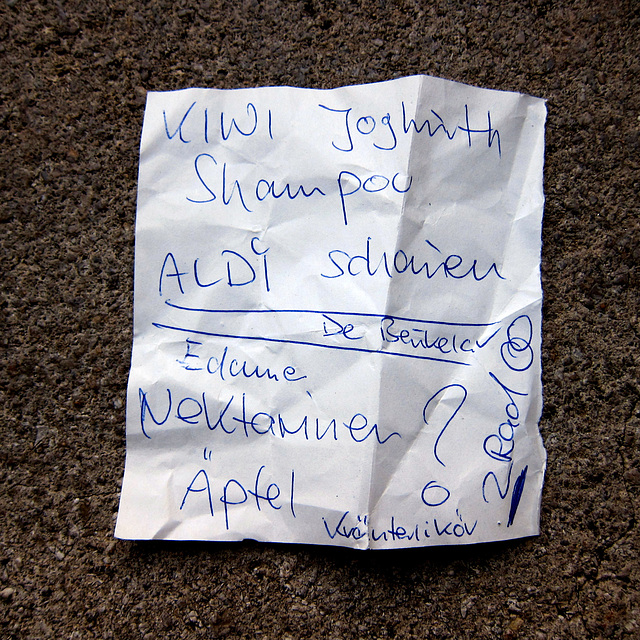 KIWI Joghurth
Shampoo
ALDI schauen
De Beukelar
Edame
Nektarinen ?
Äpfel
Kräuterlikör
2 Rad